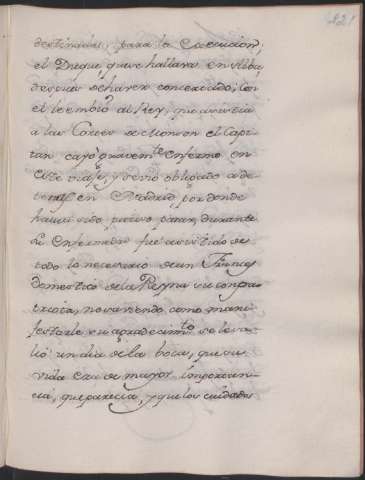 421
destinadas, para la Execucion;
el Duque, que se hallava en Alba,
despues de haver concertado, con
el le embió al Rey, que asistia
a las Cortes de Monzon el Capi-
tan cayó gravem.te enfermo en
este viaje, y se vió obligado a de-
tener en Madrid, por donde
havia sido preciso pasar, durante
su enfermedad fue asistido de
todo lo necesario de un Francés
domestico de la Reyna su compa-
triota, no saviendo como mani-
festarle su agradecim.to se le va-
lió un dia de la boca, que su
vida era de mayor importan-
cia, que parecia, y que los cuidados